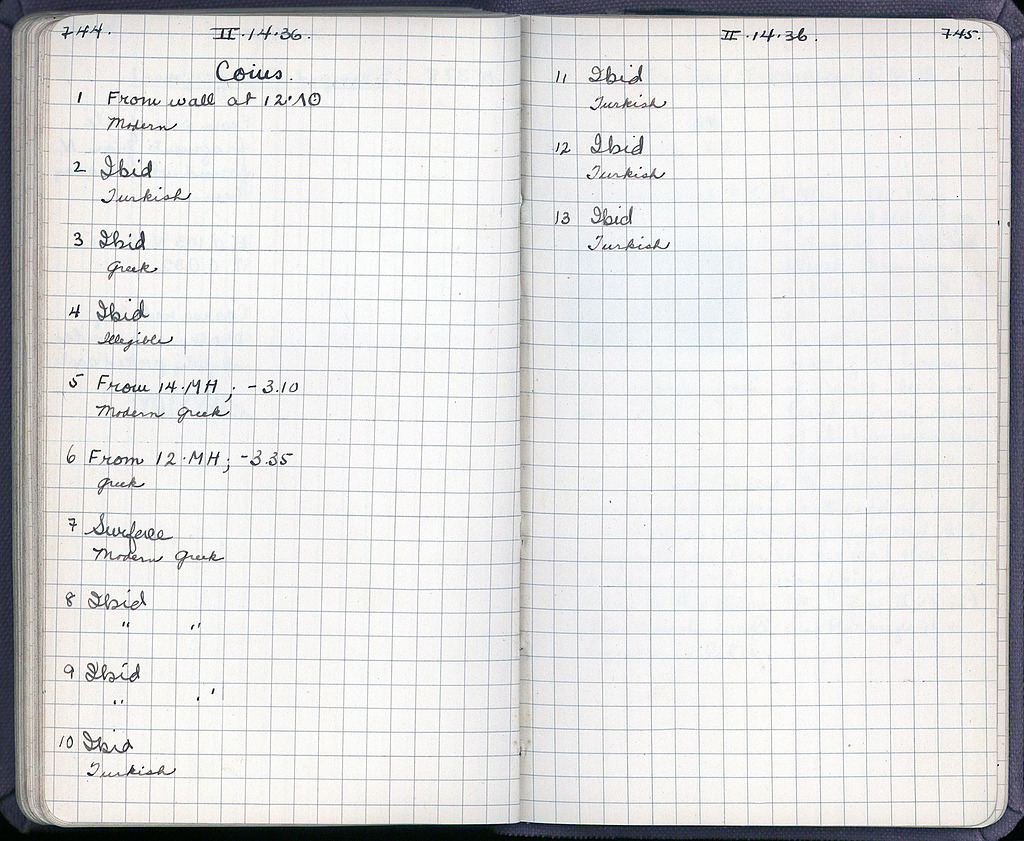 744. II·14·36.
Coins.
1 From wall at 12·10
Modern
2 Ibid
Turkish
3 Ibid
Greek
4 Ibid
Illegible
5 From 14·MH ; -3.10
Modern Greek
6 From 12·MH; -3.35
Greek
7 Surface
Modern Greek
8 Ibid
" "
9 Ibid
" "
10 Ibid
Turkish
II·14·36. 745.
11 Ibid
Turkish
12 Ibid
Turkish
13 Ibid
Turkish